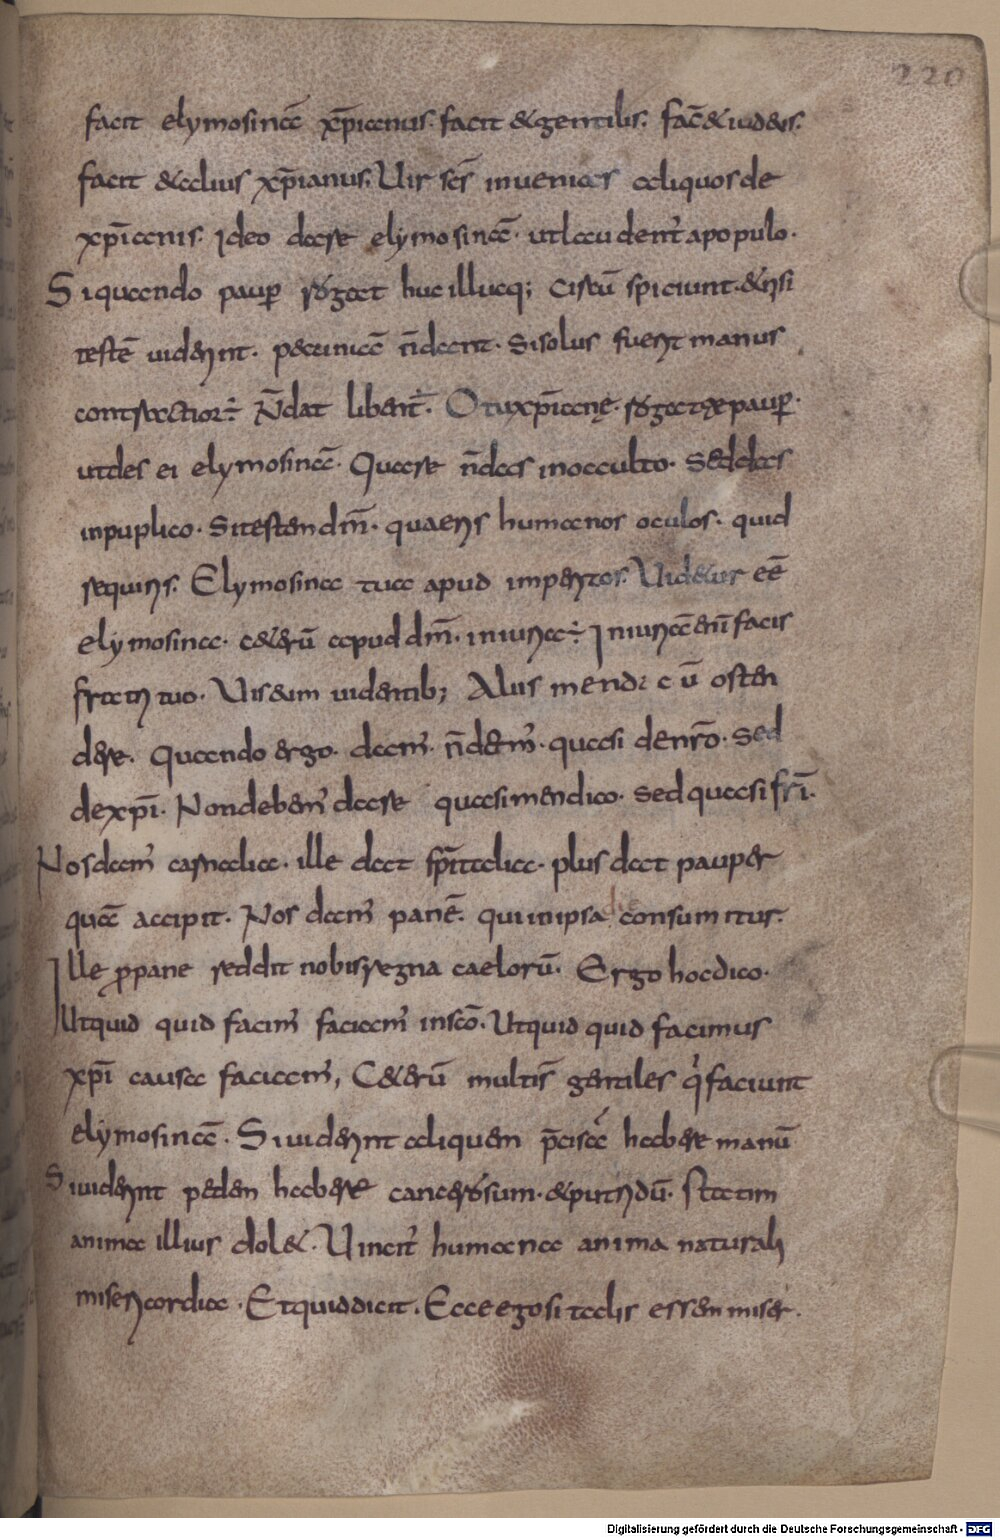 220
facit elymosinā xp̄ianus. facit &gentilis. fac̄&iudeus.
facit &alius xp̄ianus. Uir sc̄s inuenias aliquos de
xp̄ianis. Ideo dare elymosinā. utlaudent᷒ apopulo.
Siquando paup̲ rogat huc illucq; cū spiciunt. &nisi
testē uiderint. pecuniā n̄dant. Sisolus fuerit manus
N̄dat libent᷒. O tuxp̄iane. rogat te paup̲.
utdes ei elymosinā. Quare n̄das inocculto. Seddas
inpuplico. Sitestem dm̄. quaeris humanos oculos. quid
sequiris. Elymosina tua apud imperitos. Uidetur eē
elymosina. c&erū apud dm̄. iniuria ÷ Iniuriā eni facis
fratri tuo. Uis eum uidentib; Alus mendicū osten
dere. Quando ergo. dam᷒. n̄ dem᷒. quasi de nr̄o. Sed
dexp̄i. Nondebem᷒ dare quasimendico. Sed quasi fr̄i.
Nosdam᷒ carnalia. ille dat sp̄italia. plus dat pauper
quā accipit. Nos dam᷒ panē. qui inipsa die consumitur.
Ille ꝓpane reddit nobisregna caelorū. Ergo hocdico.
Utquid quid facim᷒ faciam᷒ insc̄o. Utquid quid facimus
xp̄i causa faciam᷒, C&erū multis gentiles q᷒ faciunt
elymosinā. Siuiderint aliquem habere manū
Siuiderint pedem habere cancerosum. &putridū. Statim
anima illius dol&. Uincit᷒ humana anima naturali
misericordia. Etquid dicit. Ecce ego si talis essem miser.
Digitalisierung gefördert durch die Deutsche Forschungsgemeinschaft - DFG